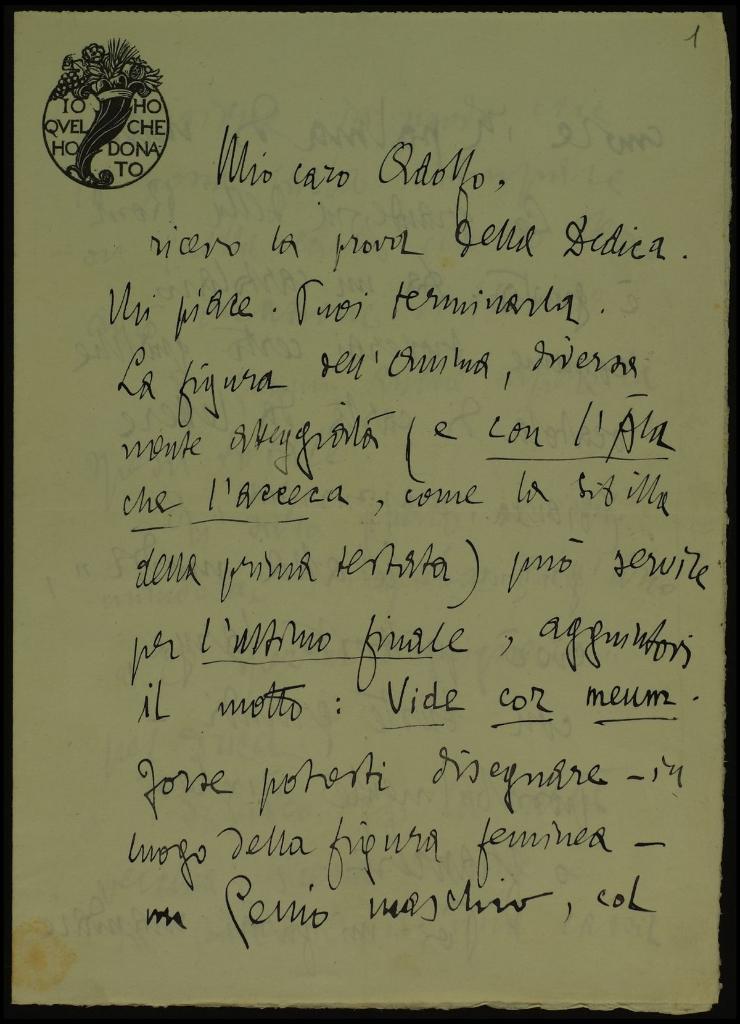 1
IO HO
QVEL CHE
HO DONA-
TO
Mio caro Adolfo,
ricevo la prova della Dedica.
Mi piace. Puoi terminarla.
La figura dell'Anima, diversa
mente atteggiata (e con l'Ala
che l'acceca, come la sibilla
della prima testata) può servire
per l'ultimo finale, aggiuntovi
il motto: Vide cor meum.
Forse potresti disegnare – in
luogo della figura feminea –
un Genio maschio, col